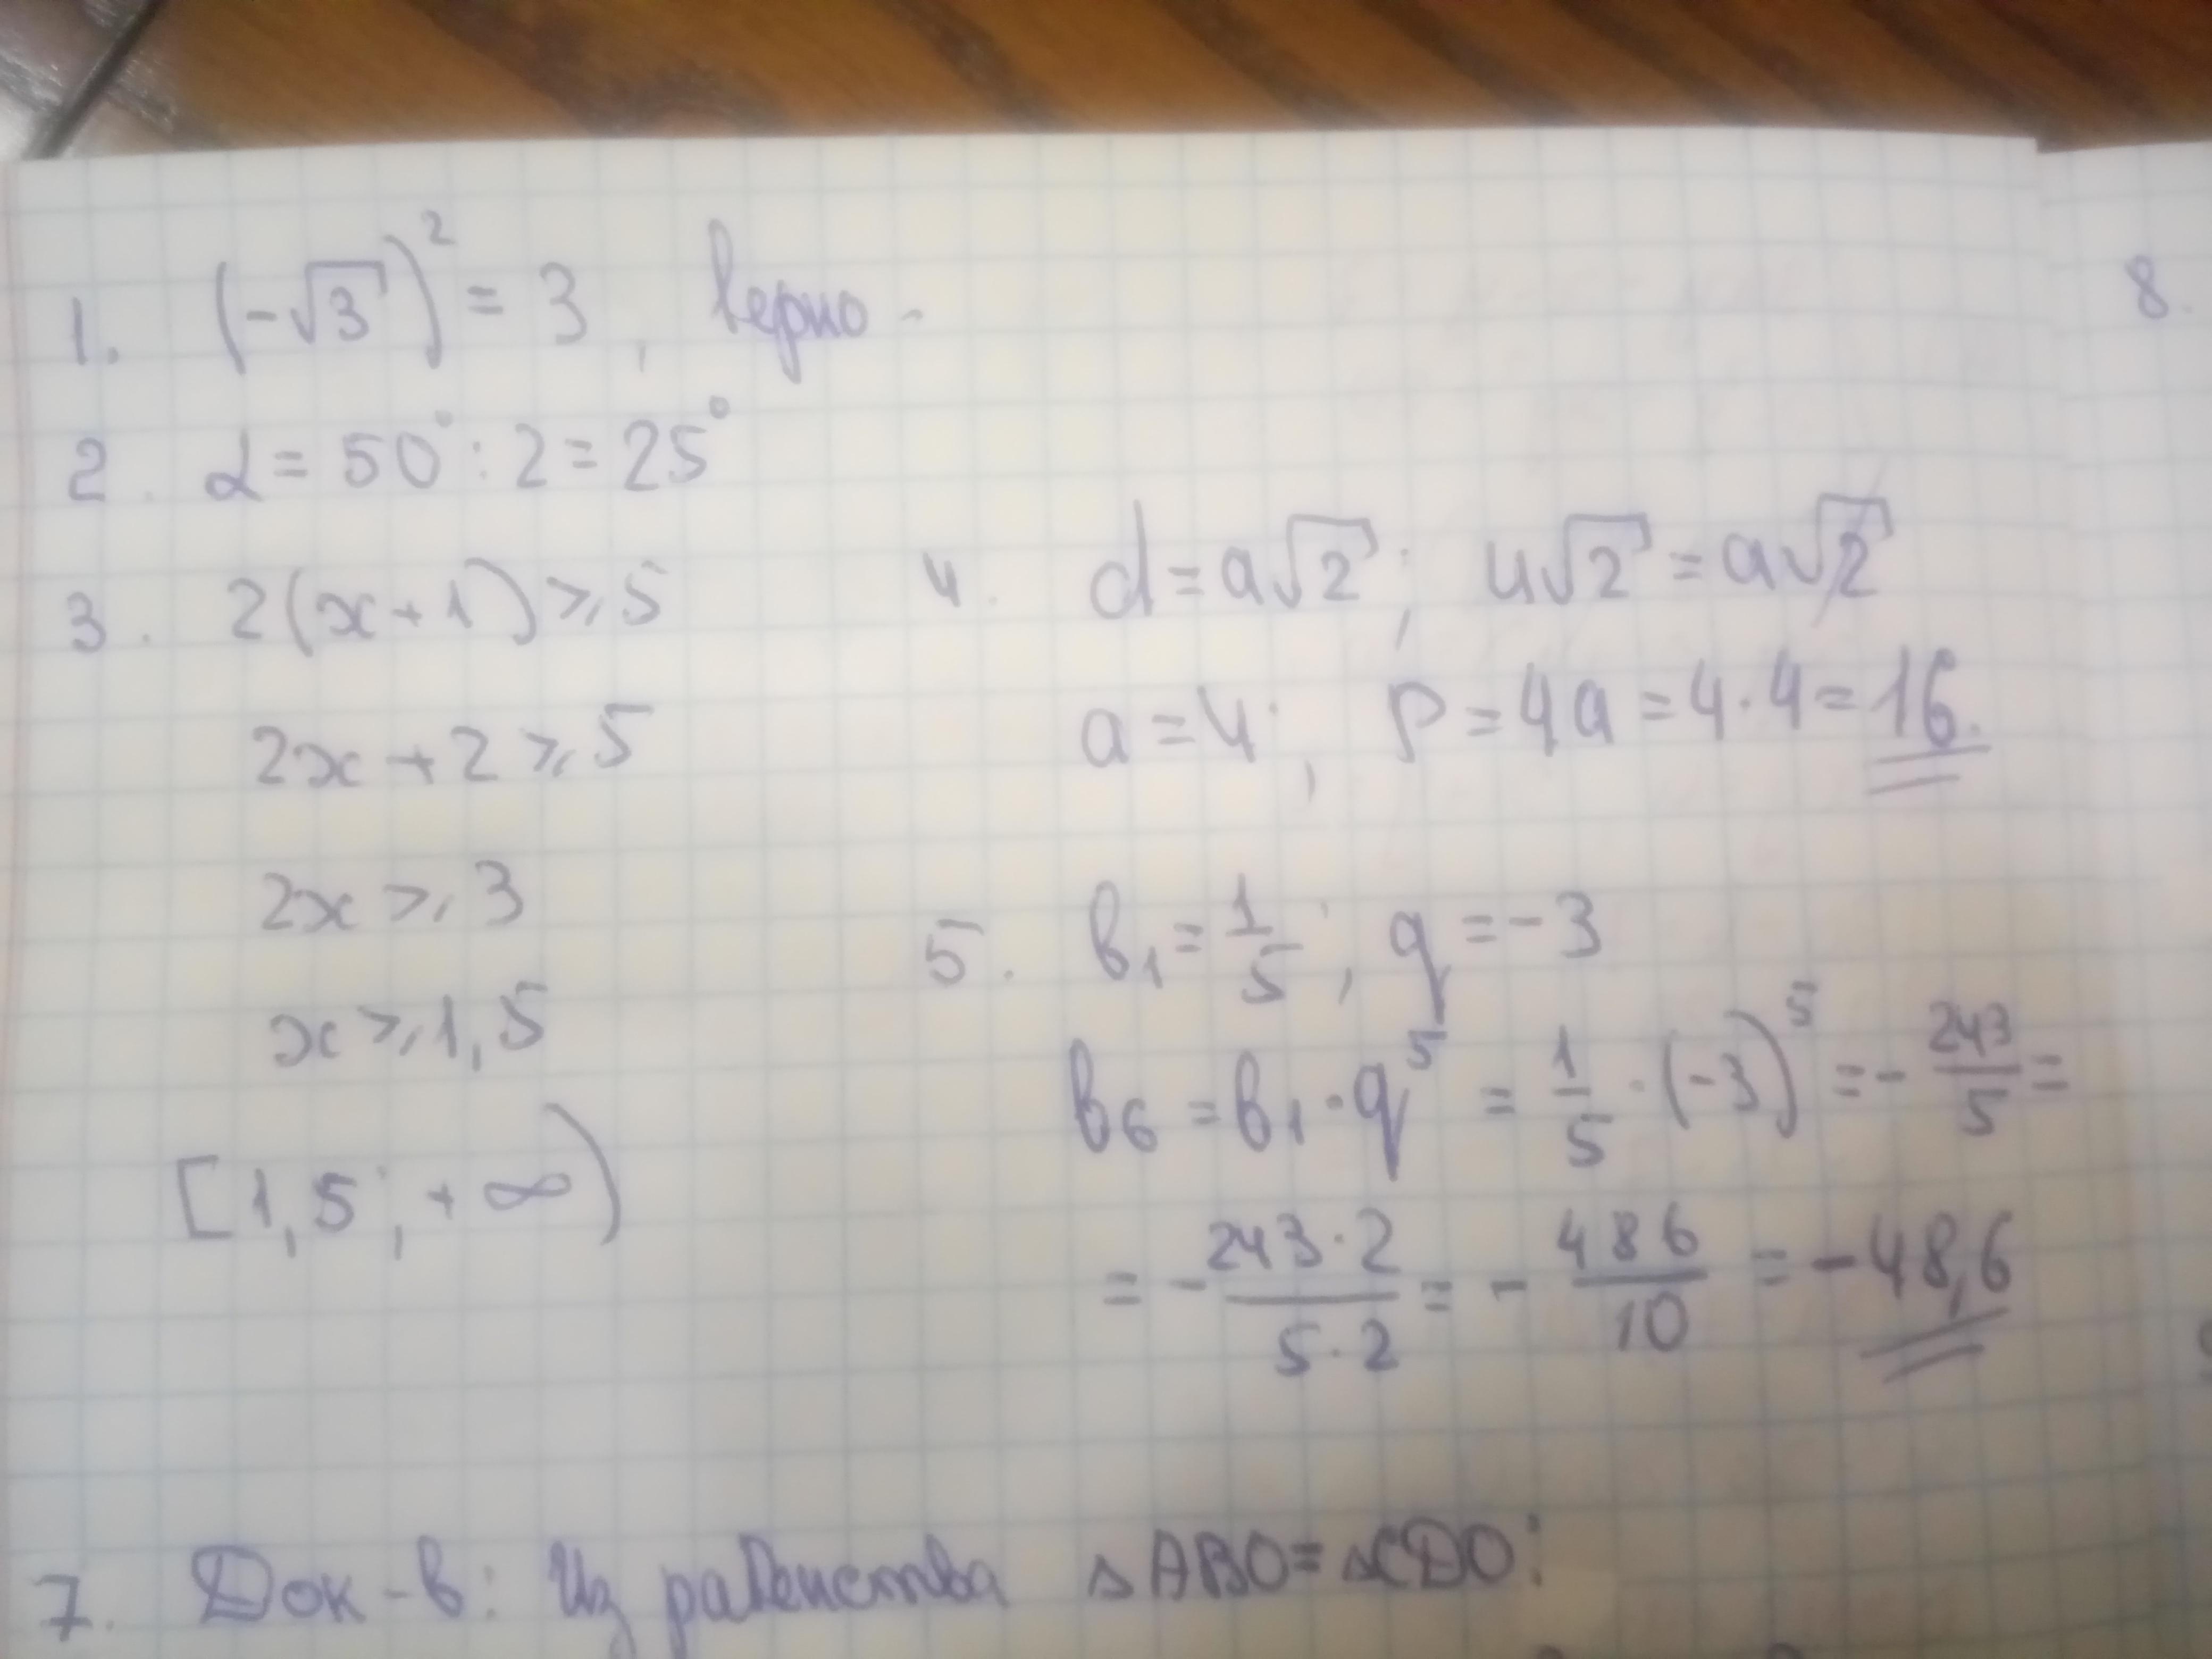 1. (-√3)² = 3, верно.
2. α = 50° : 2 = 25°
3. 2(x+1) ⩾ 5
2x + 2 ⩾ 5
2x ⩾ 3
x ⩾ 1,5
[1,5; +∞)
4. d = a√2; 4√2 = a√2
a = 4; P = 4a = 4·4 = 16.
5. b₁ = 1/5; q = -3
b₆ = b₁·q⁵ = 1/5·(-3)⁵ = -243/5 =
= -(243·2)/(5·2) = -486/10 = -48,6
7. Док-в: Из равенства ▵ABO=▵CDO:
8.